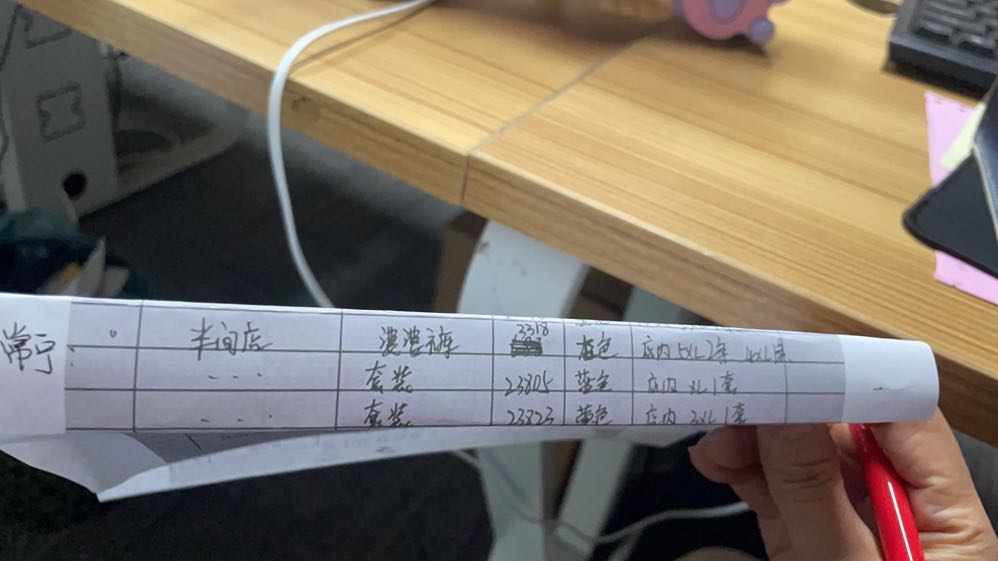 常宁 半间店 婆婆裤 3318 灰色 店内 5XL2条 4XL1条
套装 23805 蓝色 店内 XL1套
套装 23823 黄色 店内 3XL1套